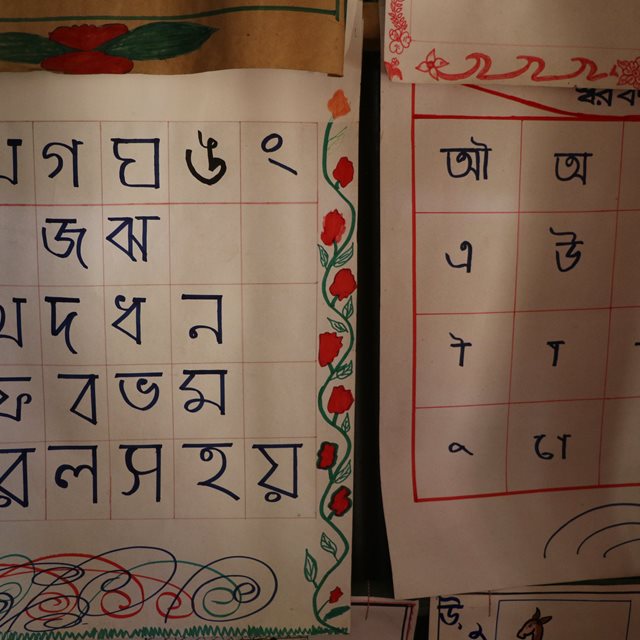 গ ঘ ঙ ং
জ ঝ
থ দ ধ ন
ফ ব ভ ম
র ল স হ য়
আ অ
এ উ
া
ু ো
উ, ু